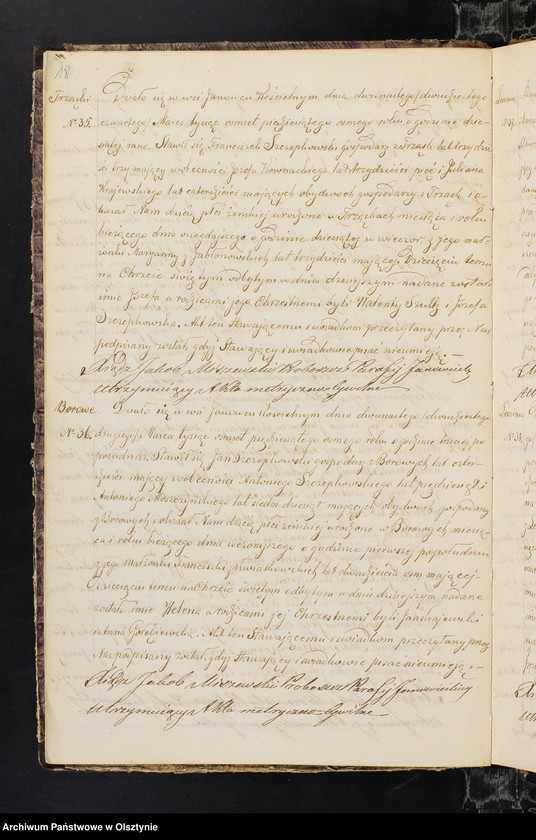 18
Trząski Działo się w wsi Janowcu Kościelnym dnia dwunastego/dwudziestego
N° 35. czwartego/ Marca tysiąc ośmset pięćdziesiątego ósmego roku o godzinie
rano. Stawił się Franciszek Szczepkowski gospodarz z Trząsk lat trzydzi-
eści trzy mający w obecności Józefa Kownackiego lat trzydzieści pięć i Juliana
Krajewskiego lat czterdzieści mających obydwóch gospodarzy z Trząsk i o-
kazał Nam dziecię płci żeńskiej urodzone w Trząskach miesiąca i roku
bieżącego dnia o godzinie dziesiątej w wieczór z jego mał-
żonki Maryanny z Jabłonowskich lat trzydzieści mającej. Dziecięciu temu
na Chrzcie świętym odbytym w dniu dzisiejszym nadane zostało
imie Józefa a rodzicami jego Chrzestnemi byli Walenty Szulc i Józefa
Szczepkowska. Akt ten Stawającemu i świadkom przeczytany przez Nas
podpisany został, gdyż Stawający i świadkowie pisać nieumieją.—
Xiądz Jakób Miszewski Proboszcz Parafij Janowieckiej
utrzymujący Akta metryczno Cywilne
Borowe Działo się w wsi Janowcu Kościelnym dnia dwunastego/dwudziestego
N° 36. czwartego/ Marca tysiąc ośmset pięćdziesiątego ósmego roku o godzinie trzeciej po
południu. Stawił się Jan Szczepkowski gospodarz z Borowych lat czter-
dzieści mający w obecności Antoniego Szczepkowskiego lat pięćdziesiąt i
Antoniego Moszczyńskiego lat mających obydwóch gospodarzy
z Borowych i okazał Nam dziecię płci żeńskiej urodzone w Borowych miesią-
ca i roku bieżącego dnia wczorajszego o godzinie pierwszej popołudniu
z jego małżonki Franciszki z Kwiatkowskich lat dwadzieścia osm mającej.
Dziecięciu temu na Chrzcie świętym odbytym w dniu dzisiejszym nadane
zostało imie Helena a rodzicami jej Chrzestnemi byli Jan Krajewski
i Anna. Akt ten Stawającemu i świadkom przeczytany, przez
Nas podpisany został, gdyż Stawający i świadkowie pisać nieumieją.—
Xiądz Jakób Miszewski Proboszcz Parafij Janowieckiej
utrzymujący Akta metryczno=Cywilne
Archiwum Państwowe w Olsztynie